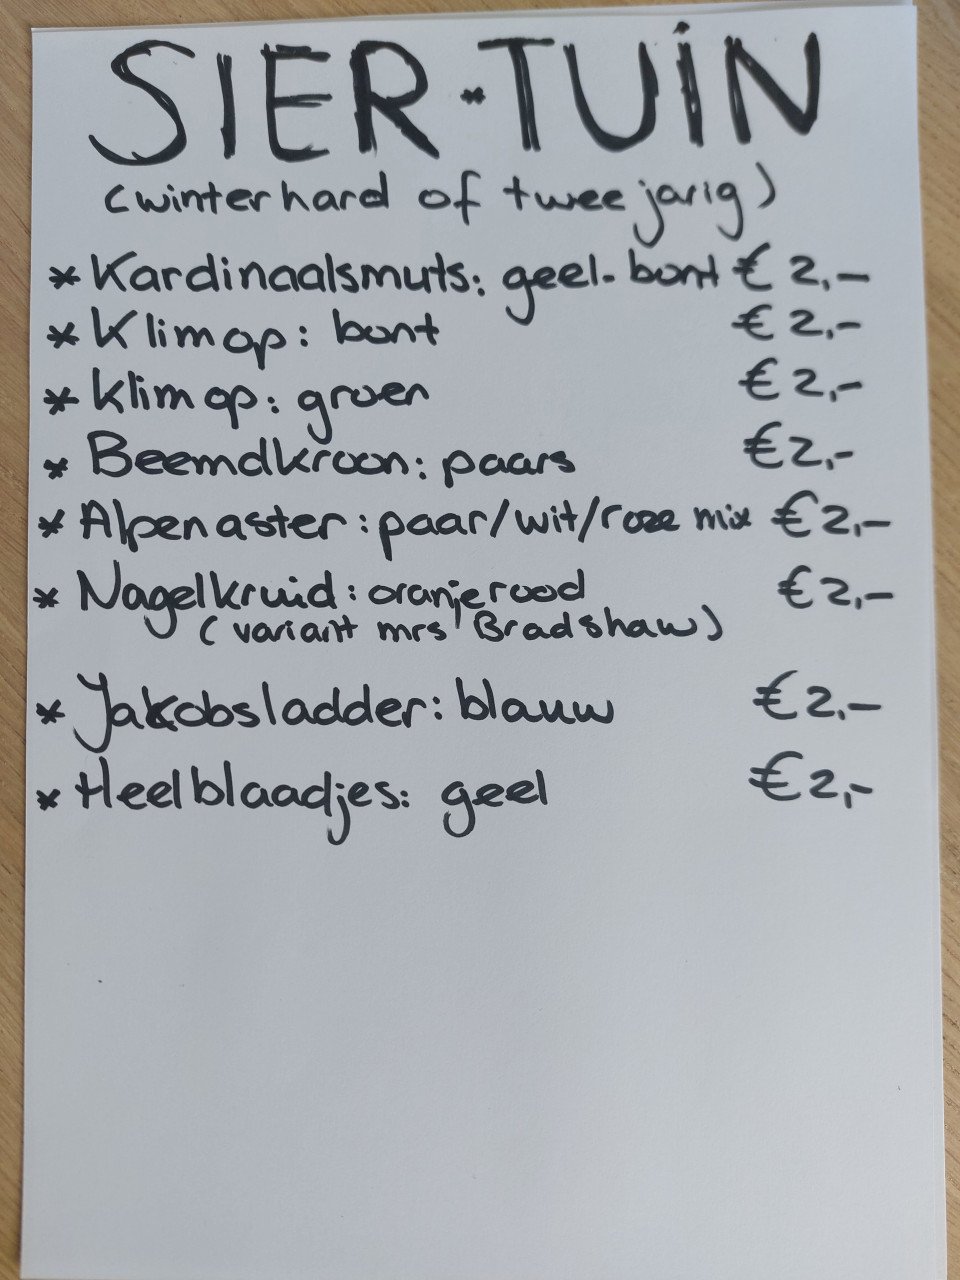 SIER-TUIN
(winterhard of tweejarig)
* Kardinaalsmuts: geel-bont € 2,-
* Klimop: bont € 2,-
* Klimop: groen € 2,-
* Beemdkroon: paars € 2,-
* Alpenaster: paar/wit/roze mix € 2,-
* Nagelkruid: oranjerood € 2,-
(variant mrs Bradshaw)
* Jakobsladder: blauw € 2,-
* Heelblaadjes: geel € 2,-